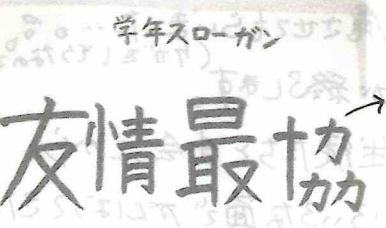 学年スローガン
友情最協